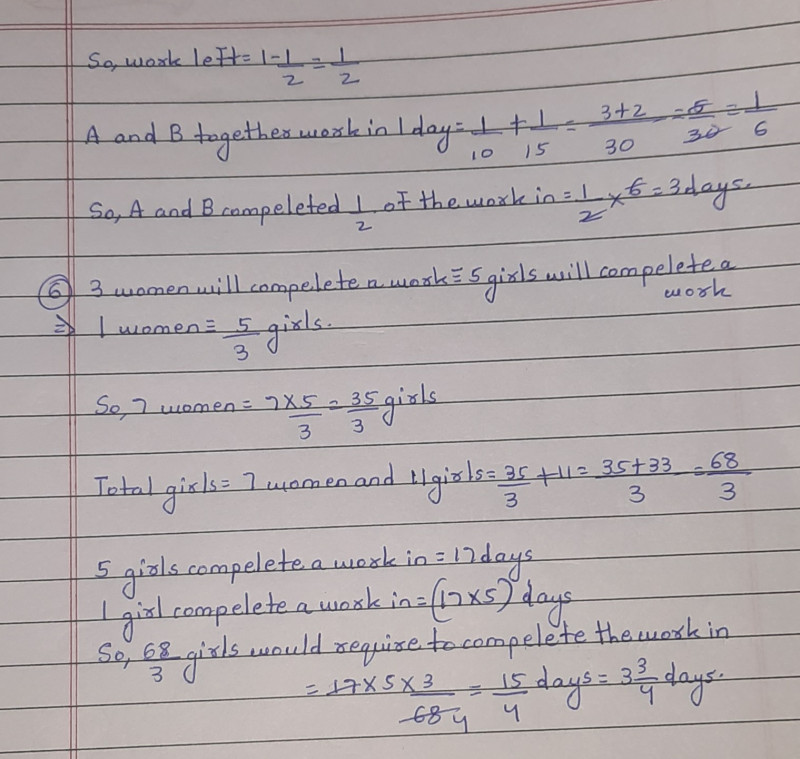 So, work left = 1 - 1/2 = 1/2
A and B together work in 1 day = 1/10 + 1/15 = 3+2/30 = 5/30 = 1/6
So, A and B compeleted 1/2 of the work in = 1/2 × 6 = 3 days.
(6) 3 women will compelete a work ≡ 5 girls will compelete a work
⇒ 1 women ≡ 5/3 girls.
So, 7 women = 7×5/3 = 35/3 girls
Total girls = 7 women and 11 girls = 35/3 + 11 = 35+33/3 = 68/3
5 girls compelete a work in = 17 days
1 girl compelete a work in = (17×5) days
So, 68/3 girls would require to compelete the work in
= 17×5×3/68 4 = 15/4 days = 3 3/4 days.